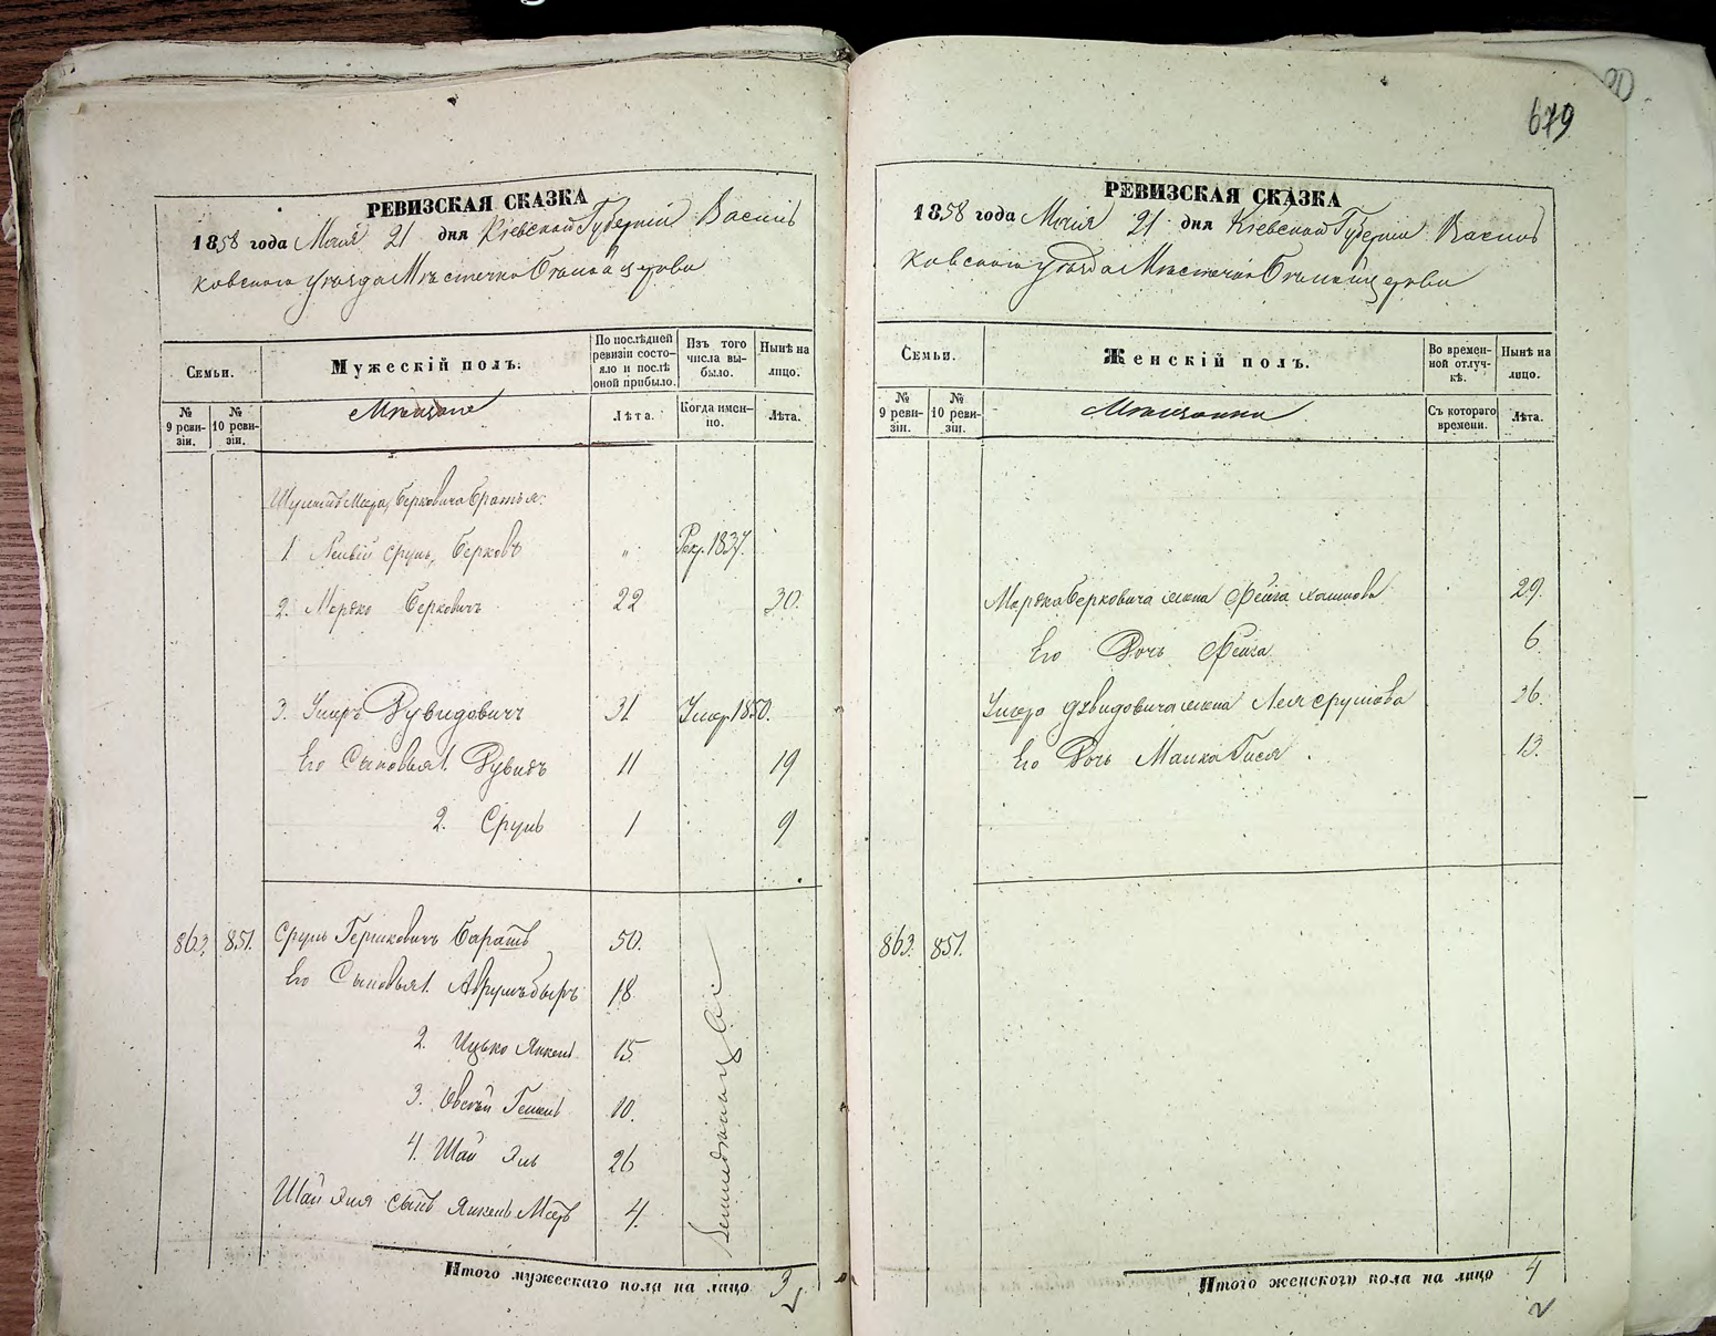 679
РЕВИЗСКАЯ СКАЗКА
1858 года Маія 21 дня Кіевской Губерніи Василь
ковскаго уѣзда Мѣстечка Бѣлой церкви
Семьи.
Мужескій полъ.
По послѣдней ревизіи состояло и послѣ оной прибыло.
Изъ того числа выбыло.
Нынѣ на лицо.
№ 9 ревизіи.
№ 10 ревизіи.
Мѣщане
Лѣта.
Когда именно.
Лѣта.
Берковича братья:
1. Срулъ Берковъ " Рекр. 1837.
2. Мордко Берковичъ 22 30.
3. Умеръ Дувидовичъ 31 Умер. 1850.
Его Сыновья 1. Дувидъ 11 19
2. Сруль 1 9
863. 851. Сруль Гершковичъ Баратъ 50.
Его Сыновья 1. Аврумъ 18
2. Ицько Янкель 15
3. Овсѣй 10.
4. Шая Эль 26
Шаи Эля сынъ Янкель 4.
Итого мужескаго пола на лицо 3
РЕВИЗСКАЯ СКАЗКА
1858 года Маія 21 дня Кіевской Губерніи Василь
ковскаго уѣзда Мѣстечка Бѣлой церкви
Семьи.
Женскій полъ.
Во временной отлучкѣ.
Нынѣ на лицо.
№ 9 ревизіи.
№ 10 ревизіи.
Мѣщанки
Съ котораго времени.
Лѣта.
Мордка Берковича жена Фейга 29.
Его Дочь Фейга 6.
Дувидовича жена Лея Срулова 36.
Его Дочь Малка Гися 13.
863. 851.
Итого женскаго пола на лицо 4